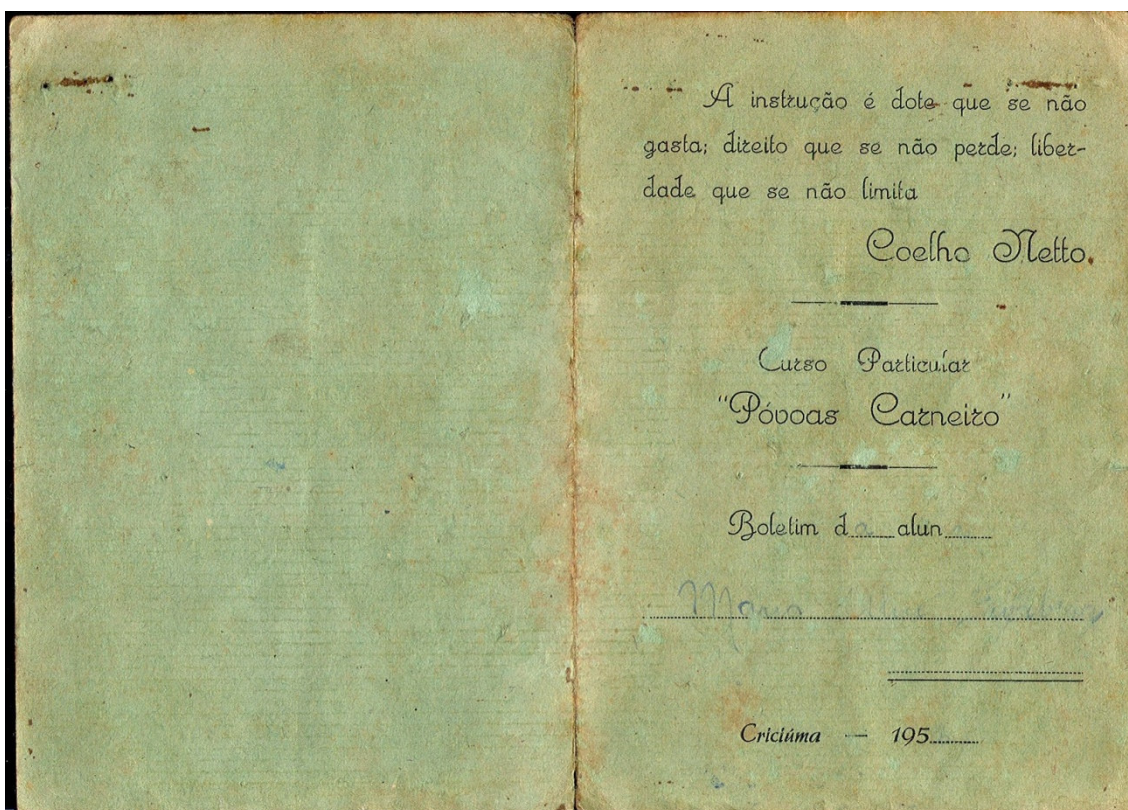 A instrução é dote que se não
gasta; direito que se não perde; liber-
dade que se não limita
Coelho Netto.
Curso Particular
"Póvoas Carneiro"
Boletim da alun
Maria
Criciúma — 195